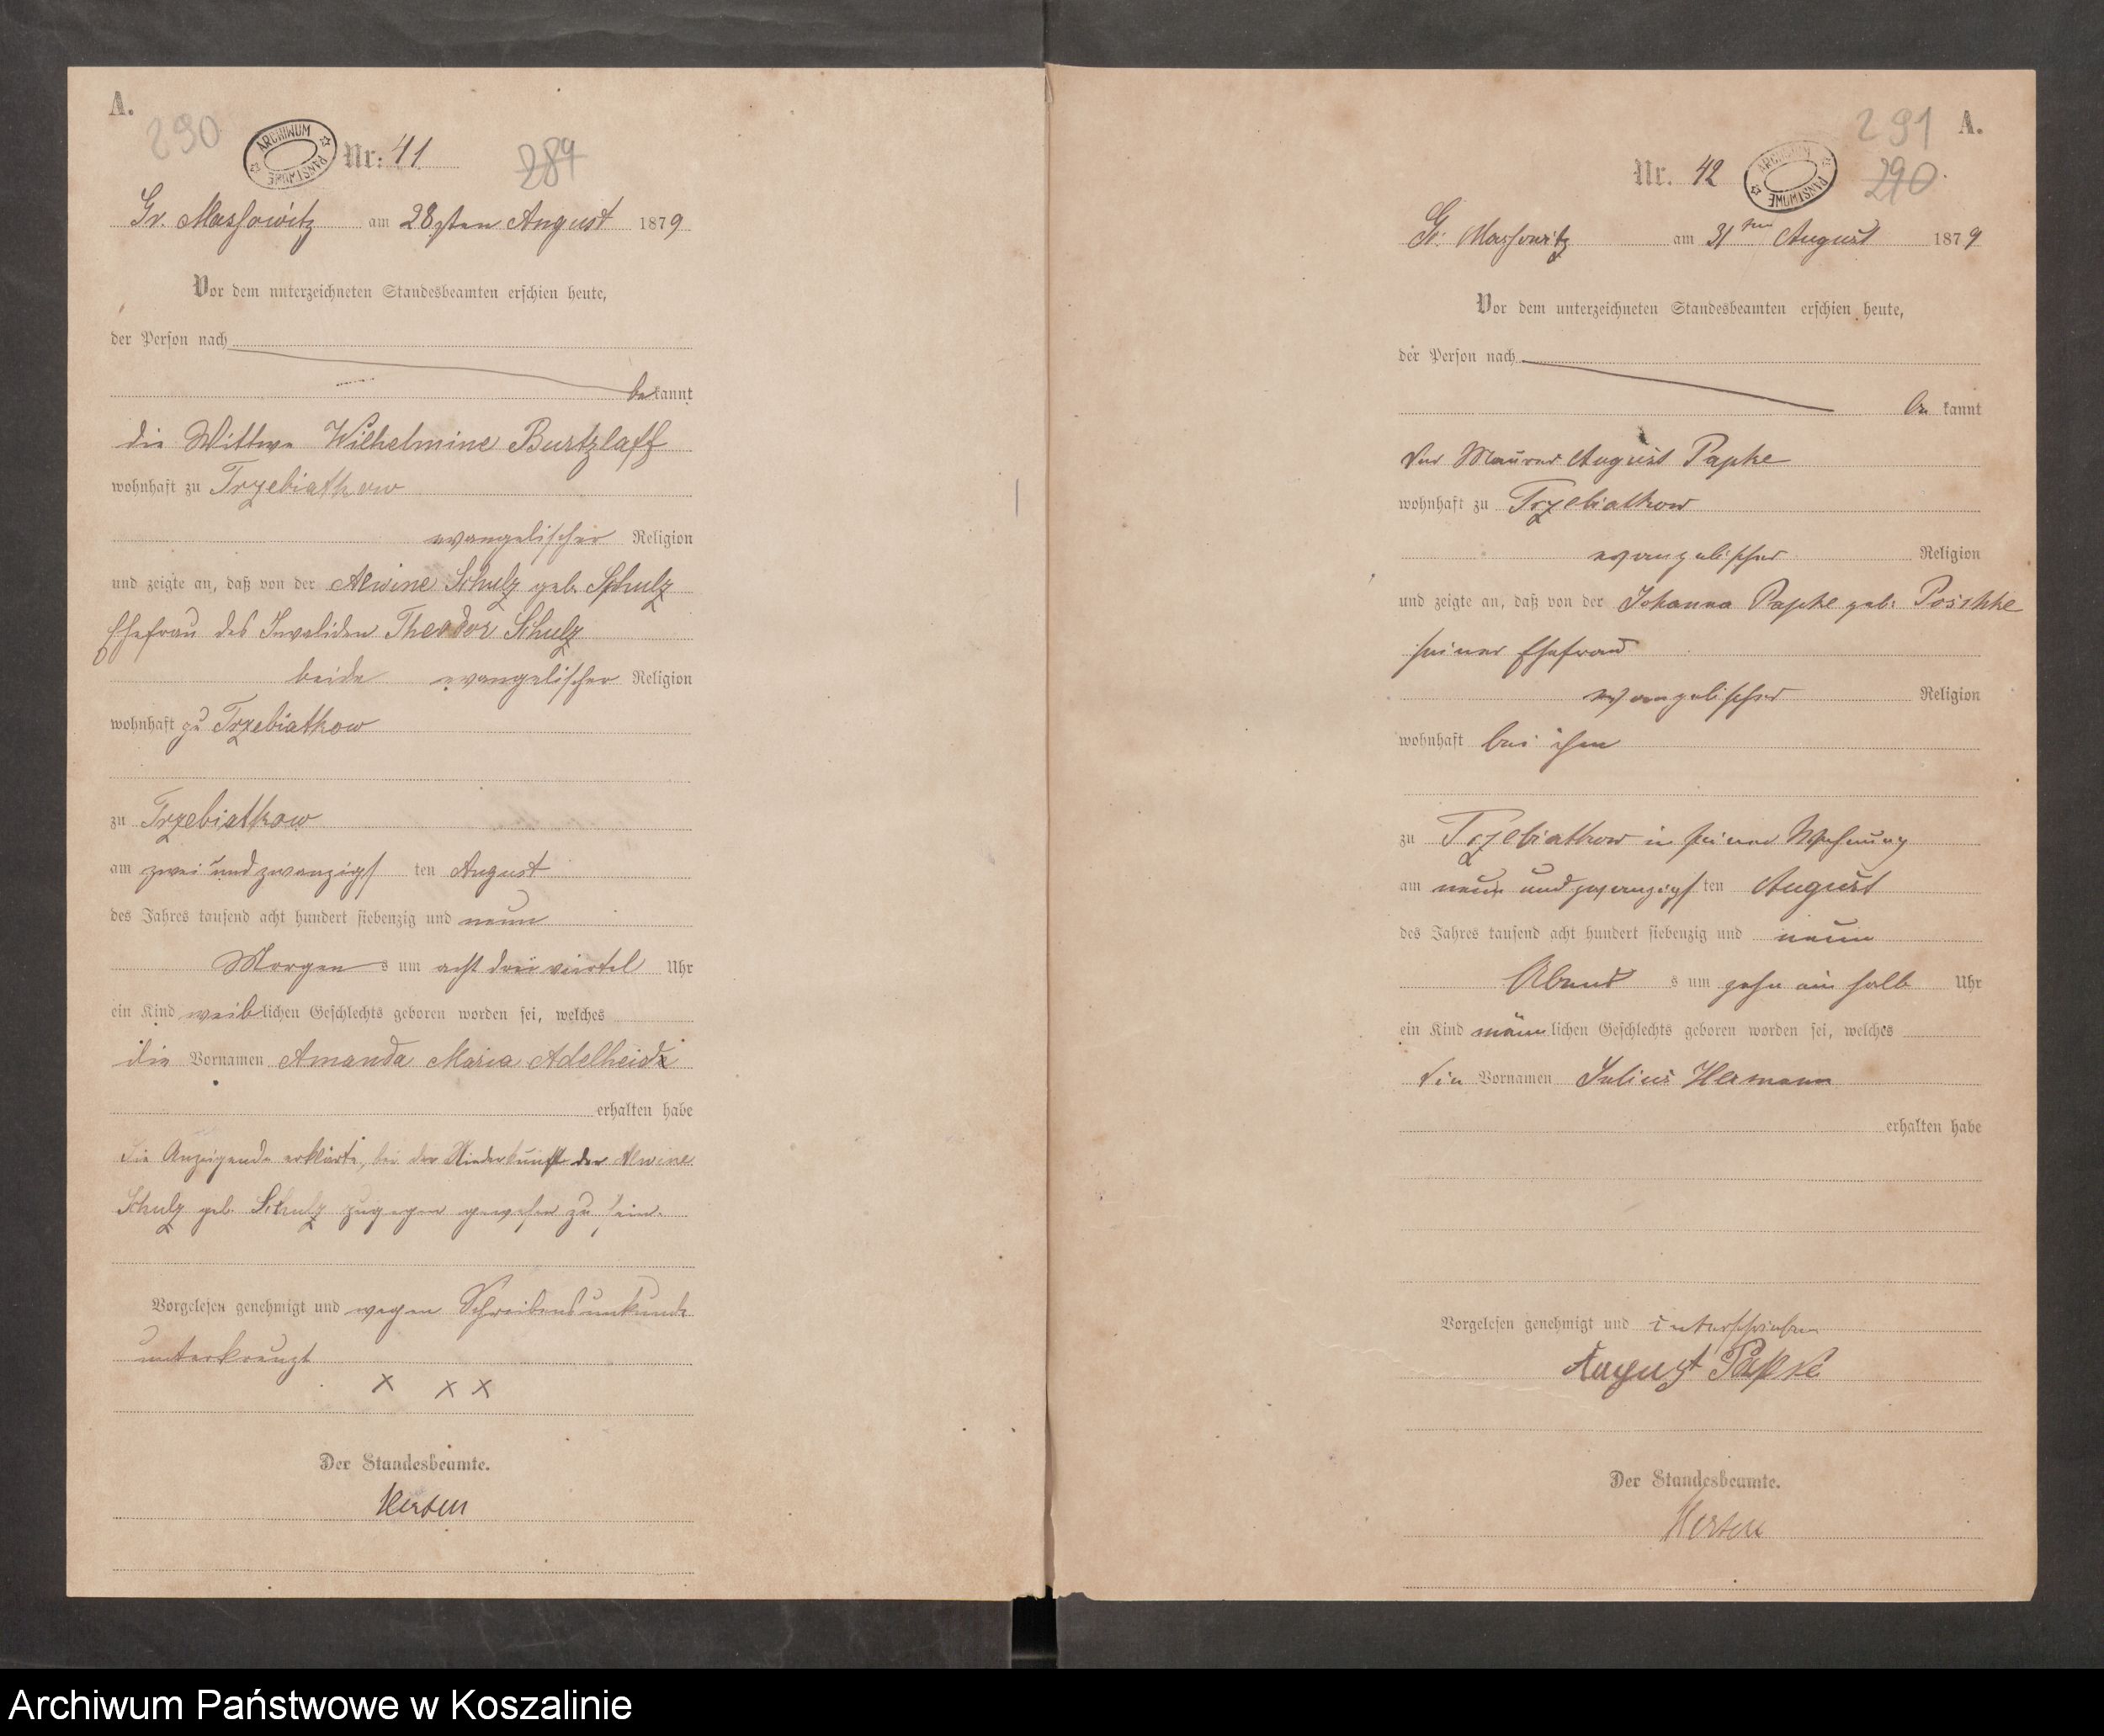 A.
290
ARCHIWUM PAŃSTWOWE
Nr. 41
289
Gr. Massowitz am 28sten August 1879
Vor dem unterzeichneten Standesbeamten erschien heute,
der Person nach
bekannt
die Wittwe Wilhelmine Burtzlaff
wohnhaft zu Trzebiatkow
evangelischer Religion
und zeigte an, daß von der Alwine Schulz geb. Schulz
Ehefrau des Invaliden Theodor Schulz
beide evangelischer Religion
wohnhaft zu Trzebiatkow
zu Trzebiatkow
am zwei und zwanzigsten August
des Jahres tausend acht hundert siebenzig und neun
Morgens um acht drei viertel Uhr
ein Kind weiblichen Geschlechts geboren worden sei, welches
die Vornamen Amanda Maria Adelheid
erhalten habe
die Anzeigende erklärte, bei der Niederkunft der Alwine
Schulz geb. Schulz zugegen gewesen zu sein.
Vorgelesen genehmigt und wegen Schreibensunkunde
unterkreuzt
x x x
Der Standesbeamte.
291
A.
Nr. 42
ARCHIWUM PAŃSTWOWE
290
Gr. Massowitz am 31ten August 1879
Vor dem unterzeichneten Standesbeamten erschien heute,
der Person nach
be kannt
der Maurer August Papke
wohnhaft zu Trzebiatkow
evangelischer Religion
und zeigte an, daß von der Johanna Papke geb. Poschke
seiner Ehefrau
evangelischer Religion
wohnhaft bei ihm
zu Trzebiatkow in seiner Wohnung
am neun und zwanzigsten August
des Jahres tausend acht hundert siebenzig und neun
Abends um zehn ein halb Uhr
ein Kind männlichen Geschlechts geboren worden sei, welches
die Vornamen Julius Hermann
erhalten habe
Vorgelesen genehmigt und unterschrieben
August Papke
Der Standesbeamte.
Archiwum Państwowe w Koszalinie